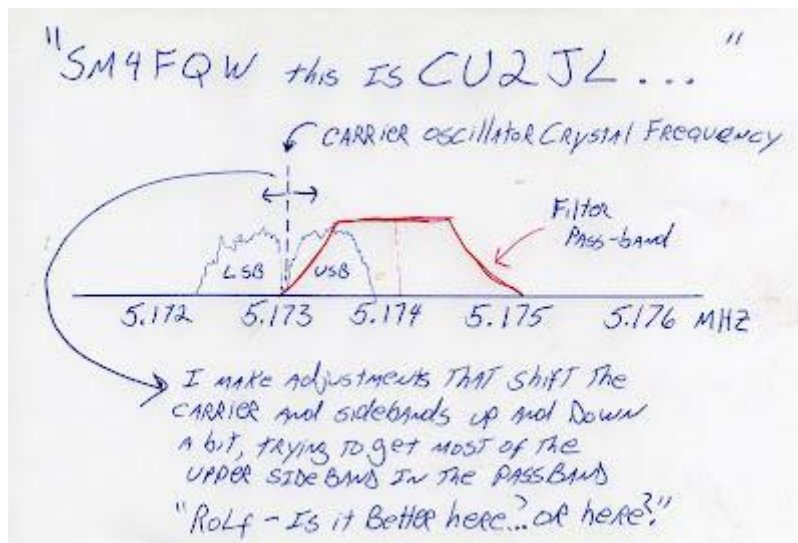 "SM4FQW this IS CU2JL ... "
CARRIER OSCILLATOR CRYSTAL FREQUENCY
Filter
PASS-BAND
LSB USB
5.172 5.173 5.174 5.175 5.176 MHZ
I MAKE AdjustmENTS THAT SHIFT THE
CARRIER and sidebands up and Down
A bit, TRYING TO get MOST OF THE
UPPER SIDE BAND IN THE PASSBAND
"RoLf - Is it Better here..? OR here?"